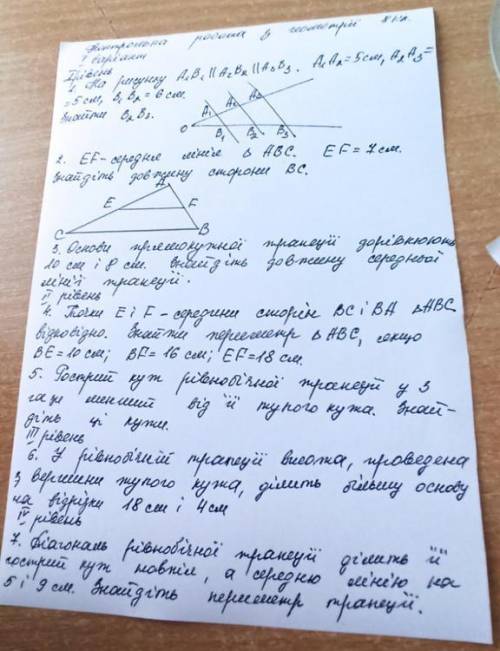 Контрольна робота з геометрії
І варіант
І рівень
1. На рисунку A₁B₁ || A₂B₂ || A₃B₃. A₁A₂ = 5см, A₂A₃ =
= 5см, B₁B₂ = 6см.
Знайти B₂B₃.
A₁ A₂ A₃
O B₁ B₂ B₃
2. EF - середня лінія △ ABC. EF = 7см.
Знайдіть довжину сторони BC.
A
E F
C B
3. Основи прямокутної трапеції дорівнюють
10 см і 8 см. Знайдіть довжину середньої
лінії трапеції.
ІІ рівень
4. Точки E і F - середини сторін BC і BA △ABC
відповідно. Знайти периметр △ ABC, якщо
BE = 10 см; BF = 16 см; EF = 18 см.
5. Гострий кут рівнобічної трапеції у 3
рази менший від її тупого кута. Знай-
діть ці кути.
ІІІ рівень
6. У рівнобічній трапеції висота, проведена
з вершини тупого кута, ділить більшу основу
на відрізки 18 см і 4 см
ІV рівень
7. Діагональ рівнобічної трапеції ділить її
гострий кут навпіл, а середню лінію на
5 і 9 см. Знайдіть периметр трапеції.